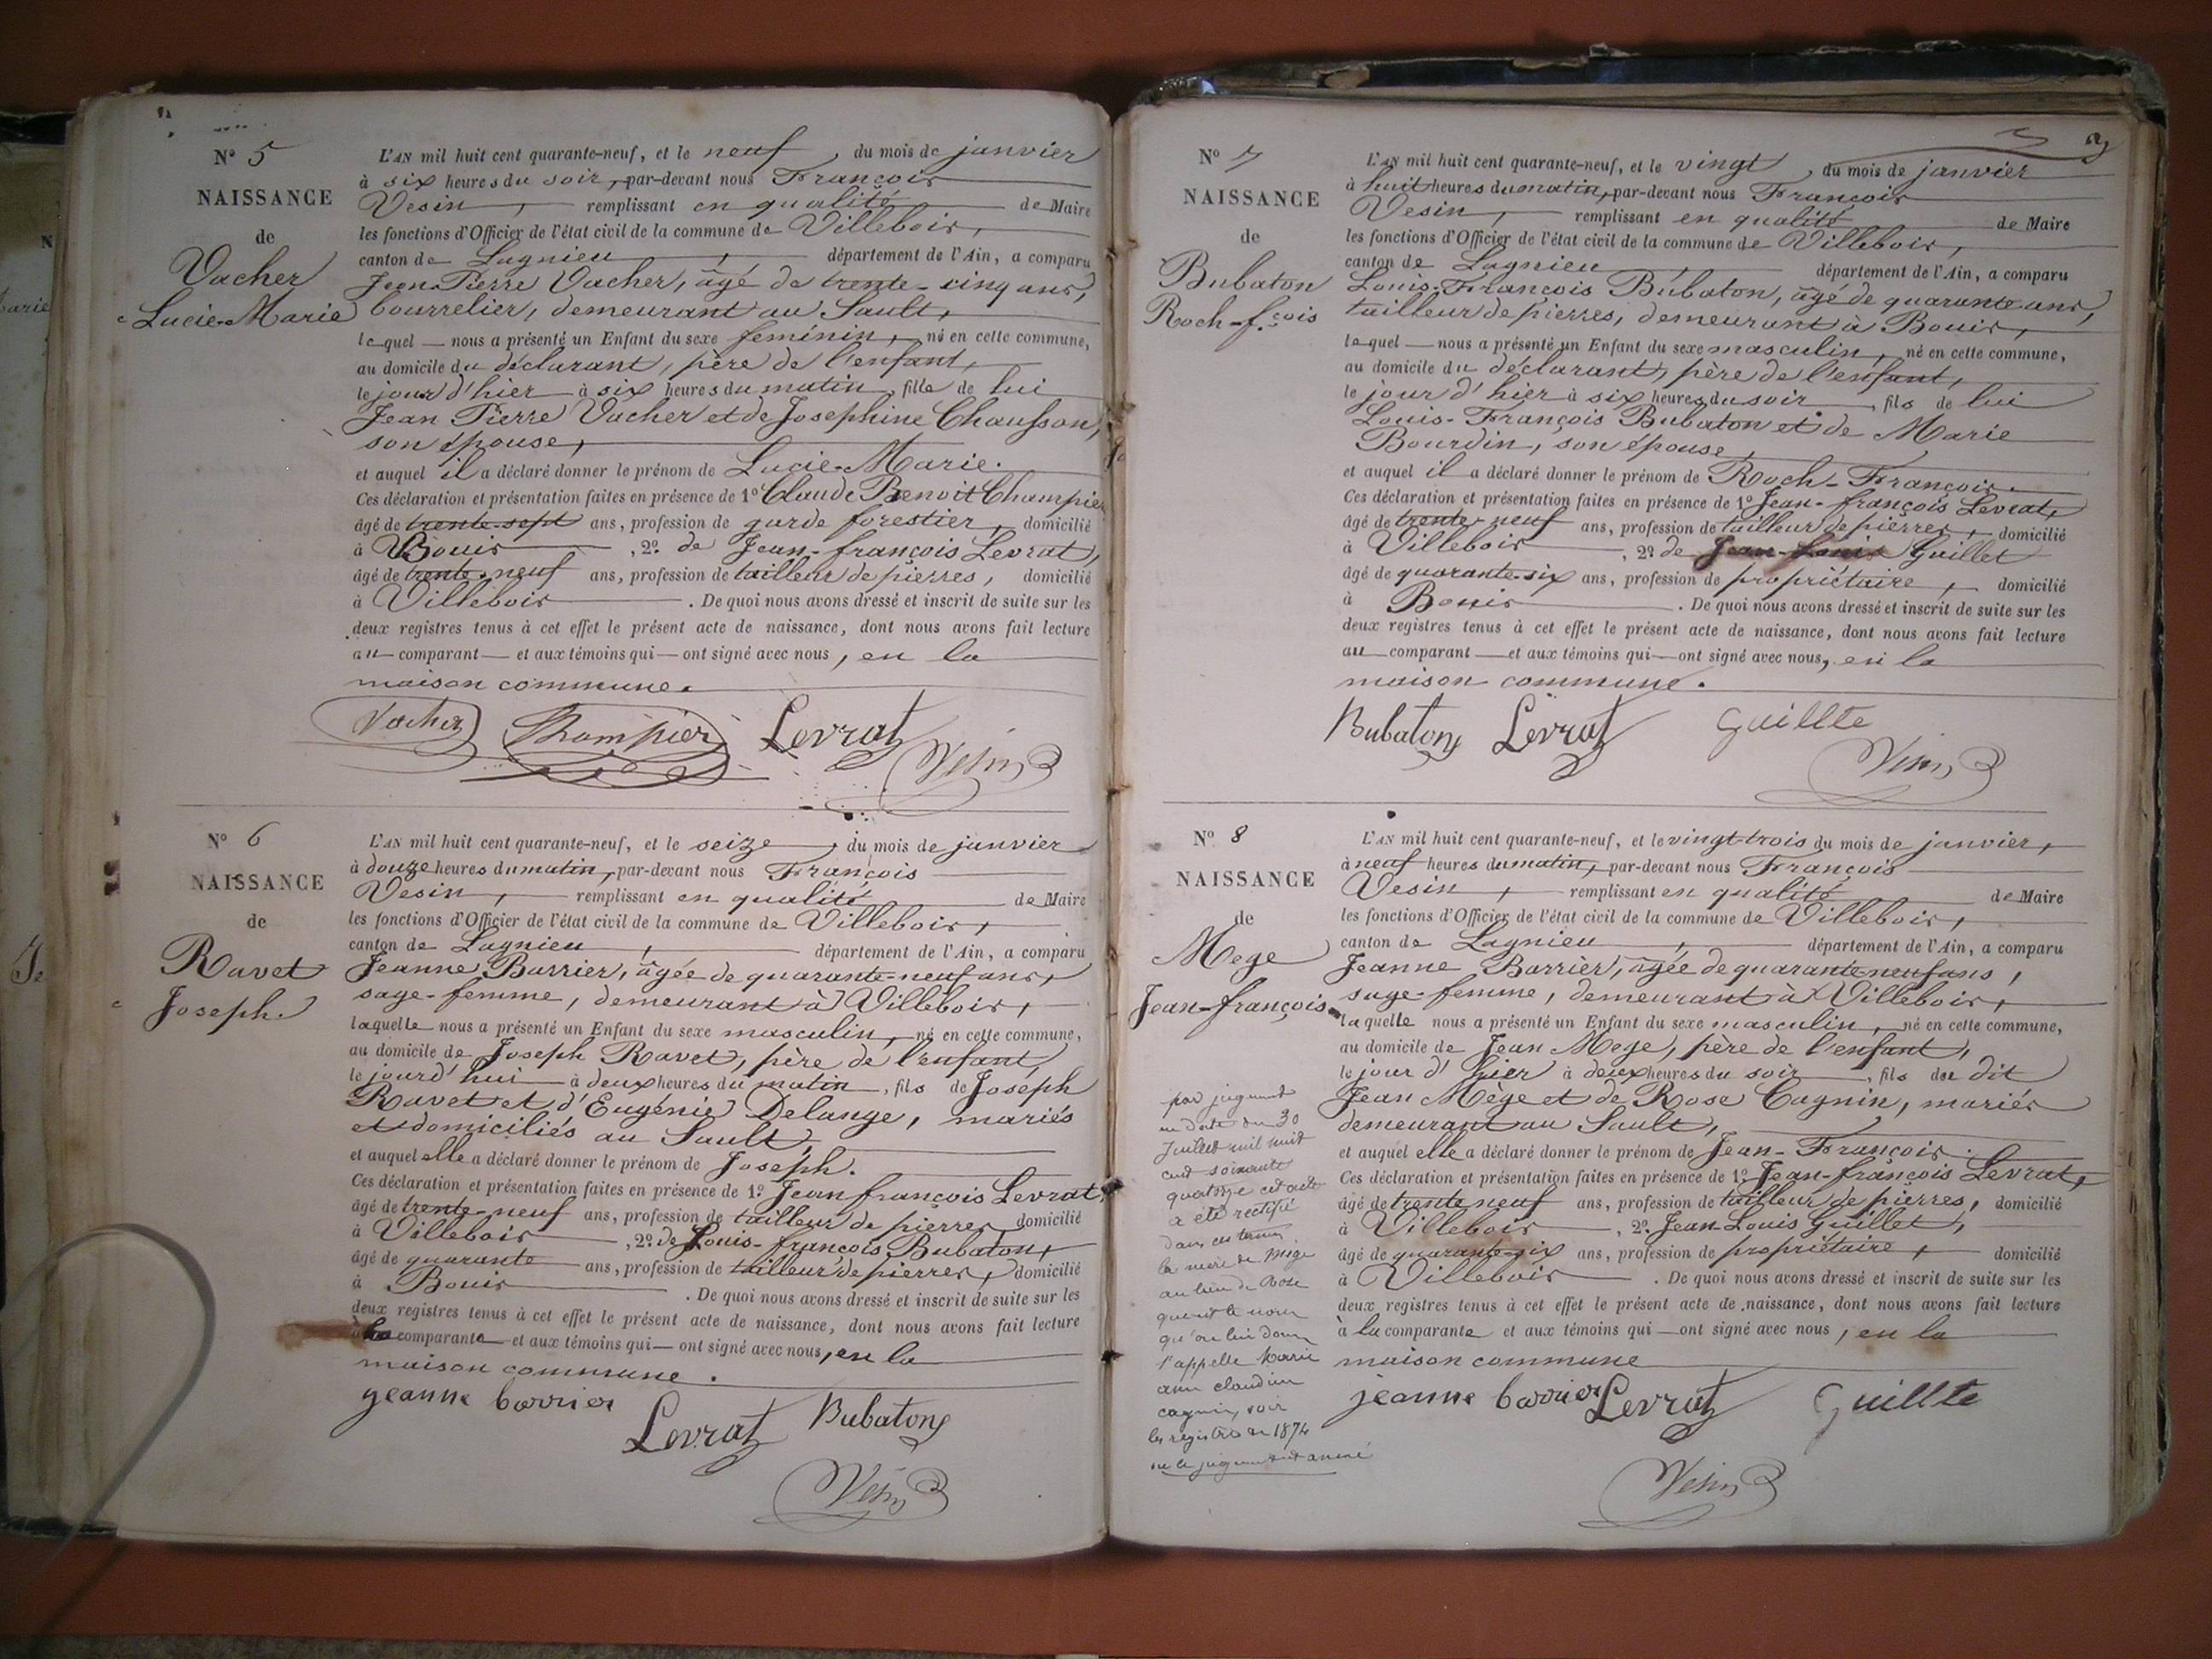 N° 5
NAISSANCE
de
Vacher
Lucie-Marie
L'AN mil huit cent quarante-neuf, et le neuf, du mois de janvier
à six heures du soir, par-devant nous François
Vesin, remplissant en qualité de Maire
les fonctions d'Officier de l'état civil de la commune de Villebois,
canton de Lagnieu, département de l'Ain, a comparu
Jean-Pierre Vacher, âgé de trente-cinq ans,
bourrelier, demeurant au Sault,
lequel nous a présenté un Enfant du sexe féminin, né en cette commune,
au domicile du déclarant, père de l'enfant,
le jour d'hier à six heures du matin, fille de lui
Jean Pierre Vacher et de Josephine Chausson,
son épouse,
et auquel il a déclaré donner le prénom de Lucie-Marie.
Ces déclaration et présentation faites en présence de 1° Claude Benoit Champier
âgé de trente-sept ans, profession de garde forestier, domicilié
à Bouis, 2° de Jean-françois Levrat,
âgé de trente-neuf ans, profession de tailleur de pierres, domicilié
à Villebois. De quoi nous avons dressé et inscrit de suite sur les
deux registres tenus à cet effet le présent acte de naissance, dont nous avons fait lecture
au comparant et aux témoins qui ont signé avec nous, en la
maison commune.
Vacher Champier Levrat
Vesin
N° 6
NAISSANCE
de
Ravet
Joseph
L'AN mil huit cent quarante-neuf, et le seize, du mois de janvier
à douze heures du matin, par-devant nous François
Vesin, remplissant en qualité de Maire
les fonctions d'Officier de l'état civil de la commune de Villebois,
canton de Lagnieu, département de l'Ain, a comparu
Jeanne Barrier, âgée de quarante-neuf ans,
sage-femme, demeurant à Villebois,
laquelle nous a présenté un Enfant du sexe masculin, né en cette commune,
au domicile de Joseph Ravet, père de l'enfant,
le jourd'hui à deux heures du matin, fils de Joseph
Ravet et d'Eugénie Delange, mariés
et domiciliés au Sault,
et auquel elle a déclaré donner le prénom de Joseph.
Ces déclaration et présentation faites en présence de 1° Jean françois Levrat,
âgé de trente-neuf ans, profession de tailleur de pierres, domicilié
à Villebois, 2° de Louis-françois Bubaton,
âgé de quarante ans, profession de tailleur de pierres, domicilié
à Bouis. De quoi nous avons dressé et inscrit de suite sur les
deux registres tenus à cet effet le présent acte de naissance, dont nous avons fait lecture
à la comparante et aux témoins qui ont signé avec nous, en la
maison commune.
jeanne barrier
Levrat Bubaton
Vesin
N° 7
NAISSANCE
de
Bubaton
Roch-f.çois
L'AN mil huit cent quarante-neuf, et le vingt, du mois de janvier
à huit heures du matin, par-devant nous François
Vesin, remplissant en qualité de Maire
les fonctions d'Officier de l'état civil de la commune de Villebois,
canton de Lagnieu, département de l'Ain, a comparu
Louis-François Bubaton, âgé de quarante ans,
tailleur de pierres, demeurant à Bouis,
lequel nous a présenté un Enfant du sexe masculin, né en cette commune,
au domicile du déclarant, père de l'enfant,
le jour d'hier à six heures du soir, fils de lui
Louis-François Bubaton et de Marie
Bourdin, son épouse,
et auquel il a déclaré donner le prénom de Roch-François.
Ces déclaration et présentation faites en présence de 1° Jean-françois Levrat,
âgé de trente-neuf ans, profession de tailleur de pierres, domicilié
à Villebois, 2° de Jean-Louis Guillet
âgé de quarante-six ans, profession de propriétaire, domicilié
à Bouis. De quoi nous avons dressé et inscrit de suite sur les
deux registres tenus à cet effet le présent acte de naissance, dont nous avons fait lecture
au comparant et aux témoins qui ont signé avec nous, en la
maison commune.
Bubaton Levrat Guillte
Vesin
N° 8
NAISSANCE
de
Mege
Jean-françois
par jugement
en date du 30
Juillet mil huit
cent soixante
quatorze cet acte
a été rectifié
dans ces termes
la mère de Mège
au lieu de Rose
qui est le nom
qu'on lui donne
s'appelle Marie
anne claudine
cagnin, voir
les registres de 1874
où le jugement est annexé
L'AN mil huit cent quarante-neuf, et le vingt-trois du mois de janvier,
à neuf heures du matin, par-devant nous François
Vesin, remplissant en qualité de Maire
les fonctions d'Officier de l'état civil de la commune de Villebois,
canton de Lagnieu, département de l'Ain, a comparu
Jeanne Barrier, âgée de quarante-neuf ans,
sage-femme, demeurant à Villebois,
laquelle nous a présenté un Enfant du sexe masculin, né en cette commune,
au domicile de Jean Mege, père de l'enfant,
le jour d'hier à deux heures du soir, fils du dit
Jean Mège et de Rose Cagnin, mariés
demeurant au Sault,
et auquel elle a déclaré donner le prénom de Jean-François.
Ces déclaration et présentation faites en présence de 1° Jean-françois Levrat,
âgé de trente neuf ans, profession de tailleur de pierres, domicilié
à Villebois, 2° Jean-Louis Guillet,
âgé de quarante-six ans, profession de propriétaire, domicilié
à Villebois. De quoi nous avons dressé et inscrit de suite sur les
deux registres tenus à cet effet le présent acte de naissance, dont nous avons fait lecture
à la comparante et aux témoins qui ont signé avec nous, en la
maison commune
jeanne barrier Levrat Guillte
Vesin